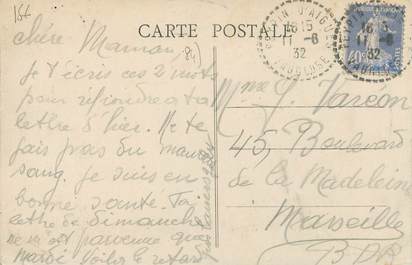 1st
CARTE POSTALE
84
Chère Maman,
Je t'écris ces 2 mots
pour répondre à ta
lettre d'hier. Ne te
fais pas du mauvais
sang. Je suis en
bonne santé. Ta
lettre de dimanche
ne m'est parvenue que
Mardi. Voilà le retard
Mme J. Varéon
45, Boulevard
de la Madeleine
Marseille
B-D-R
D'AIGU
16 15
11-6
32
VAUCLUSE
16 15
11-6
32
40c